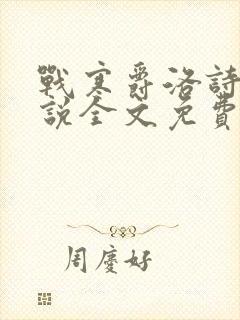 戰寒爵洛詩
說全文免費
周慶好